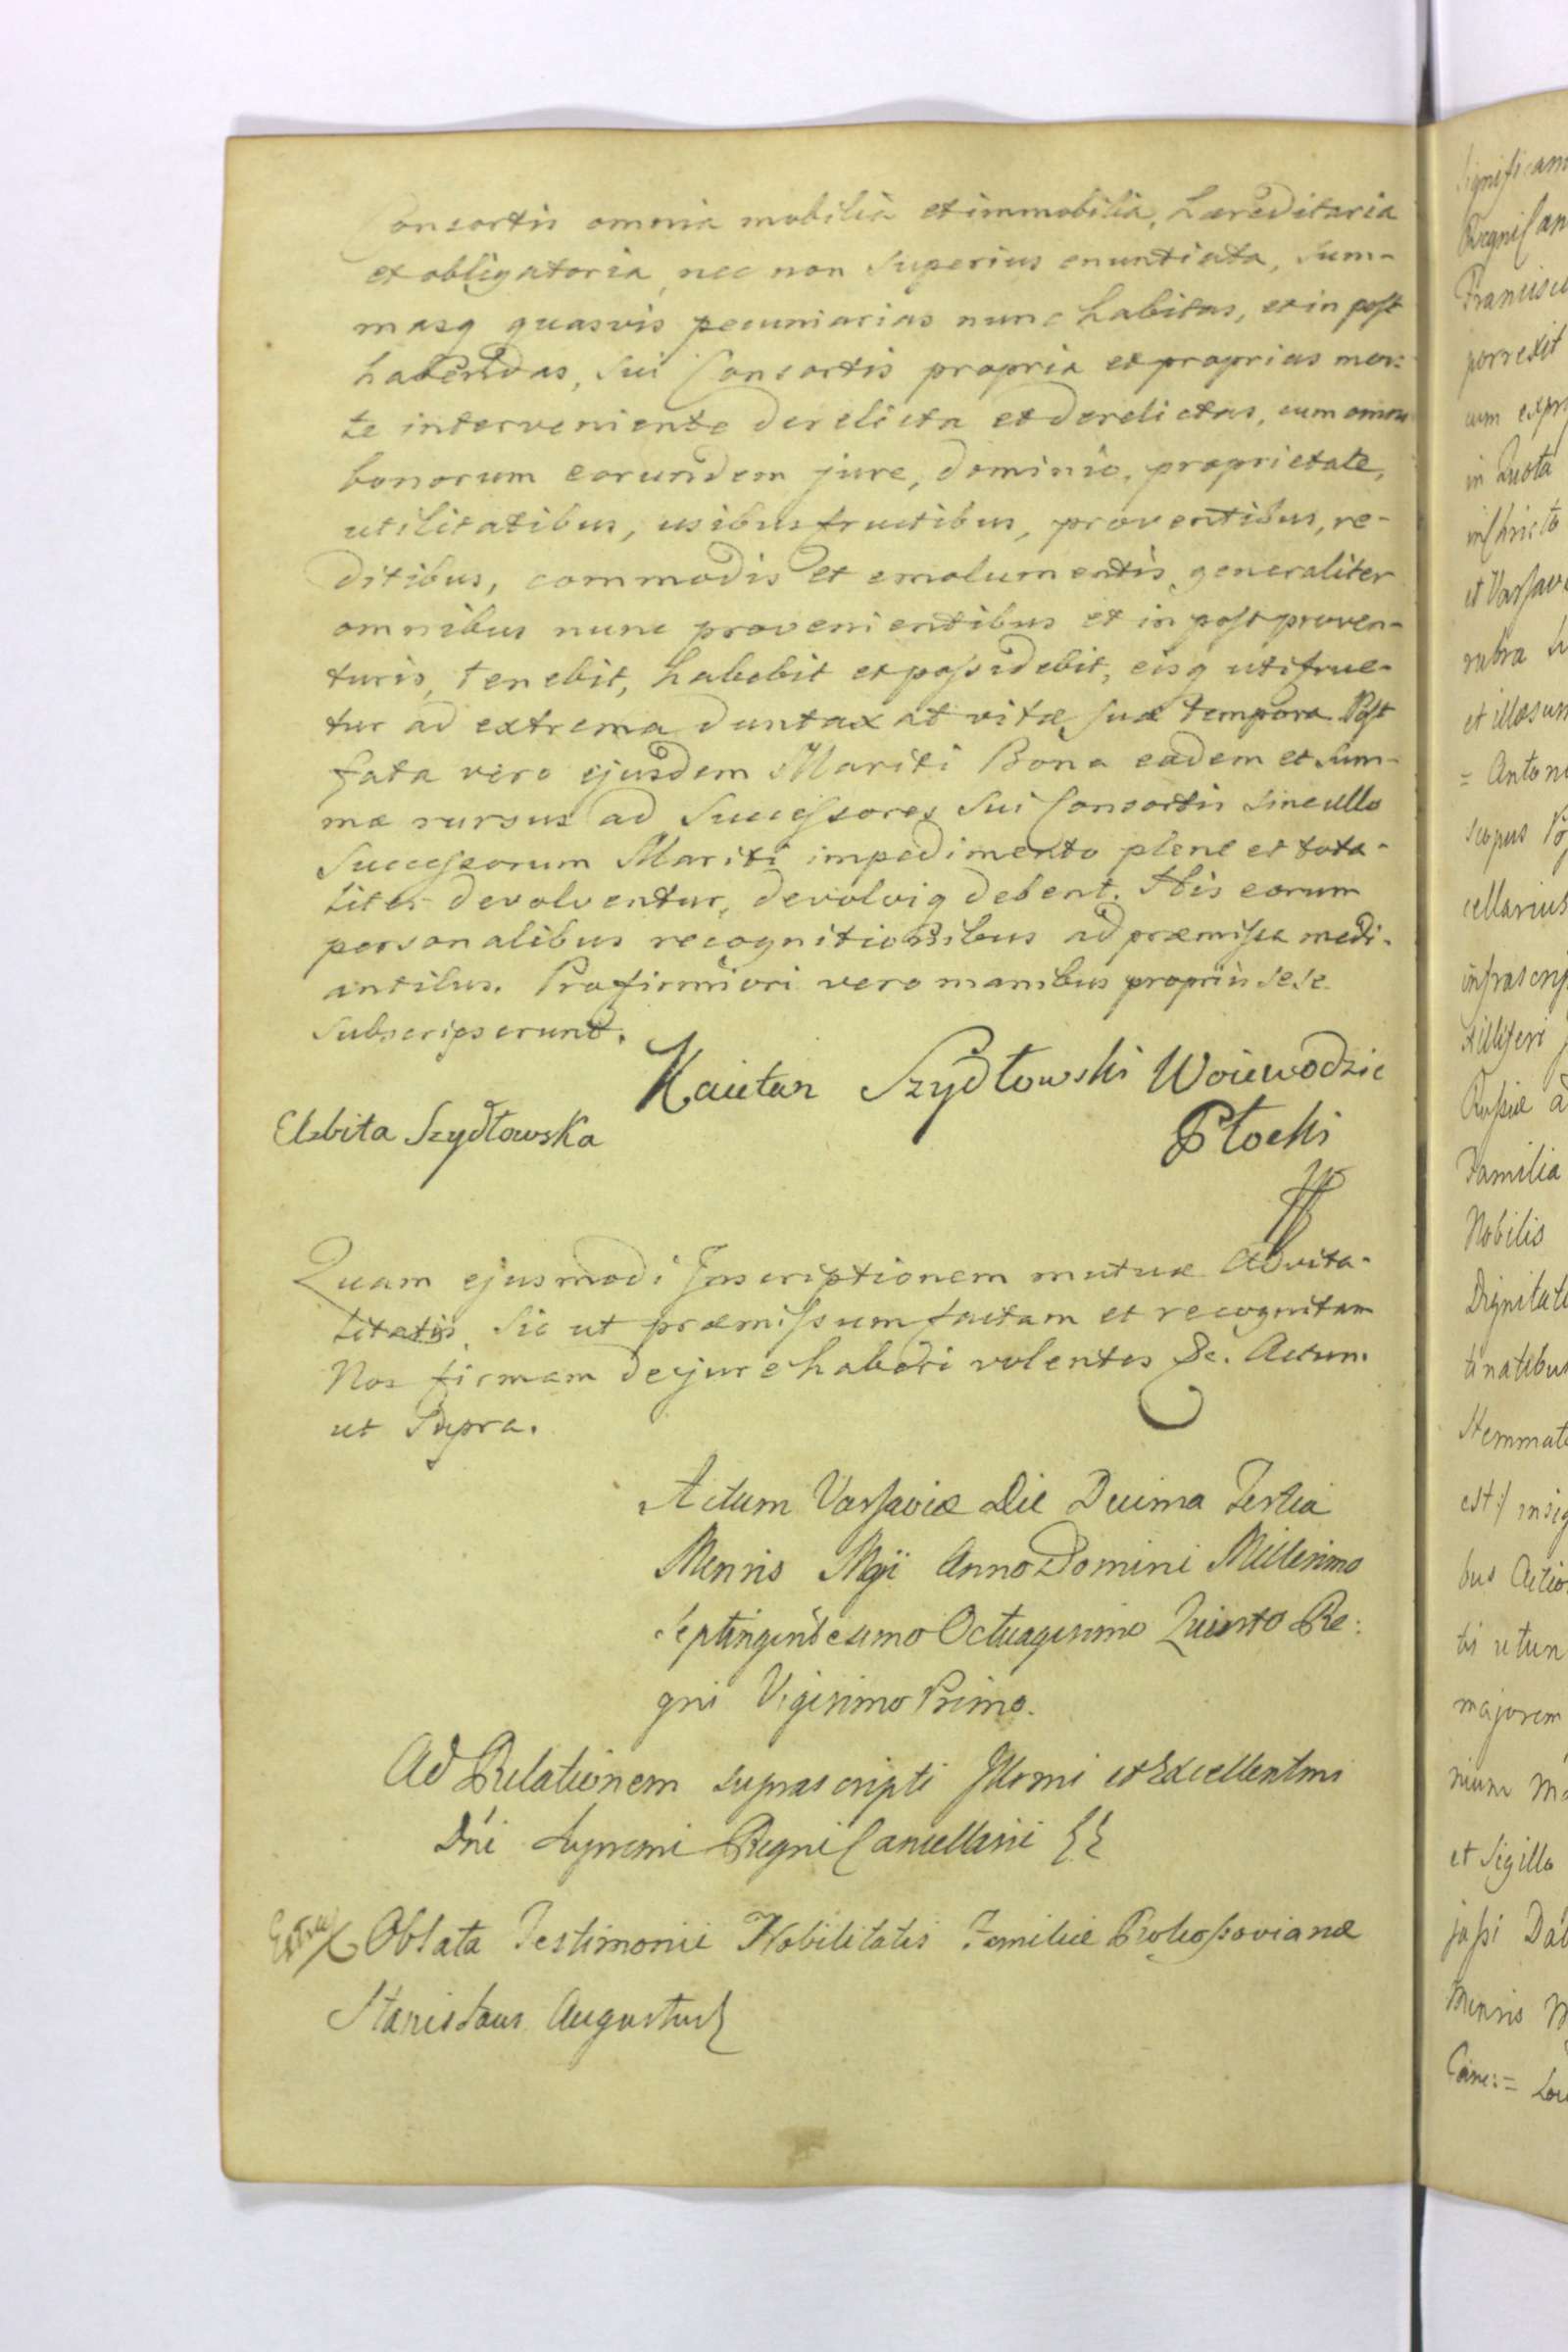 Consortis omnia mobilia et immobilia, hæreditaria
et obligatoria, nec non superius enuntiata, sum-
masq quasvis pecuniarias nunc habitas, et in post
habendas, sui Consortis propria et proprias mor:
te interveniente derelicta et derelictas, cum omni
bonorum eorundem jure, dominio, proprietate,
utilitatibus, usibusfructibus, proventibus, re-
ditibus, commodis et emolumentis generaliter
omnibus nunc provenientibus et in post proven-
turis, tenebit, habebit et possidebit, eisq utifrue-
tur ad extrema duntaxat vitæ suæ tempora. Post
fata vero ejusdem Mariti Bona eadem et sum-
mæ rursus ad Successores sui Consortis sine ullo
Successorum Mariti impedimento plene et tota-
liter devolventur, devolviq debent. His eorum
personalibus recognitionibus ad præmissa medi-
antibus. Pro firmiori vero manibus propriis sese
subscripserunt.
Kaietan Szydłowski Woiewodzic
Płocki
Elzbita Szydłowska
Quam ejusmodi Inscriptionem mutuæ advita-
litatis, sic ut præmissum factam et recognitam
Nos firmam de jure haberi volentes &c. Actum
ut Supra.
Actum Varsaviæ Die Decima Tertia
Mensis Maji Anno Domini Millesimo
Septingentesimo Octuagesimo Quinto Re:
gni Vigesimo Primo.
Ad Relationem suprascripti Illmi et Excellentmi
Dni Supremi Regni Cancellarii
Extra Oblata Testimonii Nobilitatis Familiæ Prokossovianæ
Stanislaus Augustus